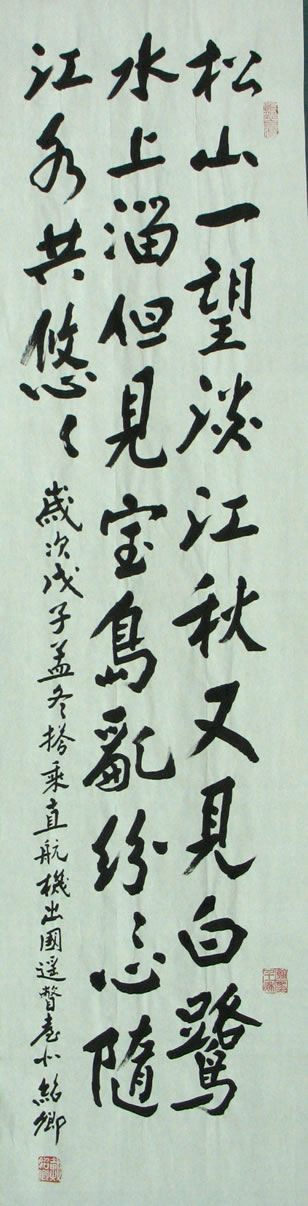 松山一望淡江秋又見白鷺
水上溜但見宝島亂紛〻心隨
江水共悠〻
歲次戊子孟冬搭乘直航機出國遥瞥臺北紹卿